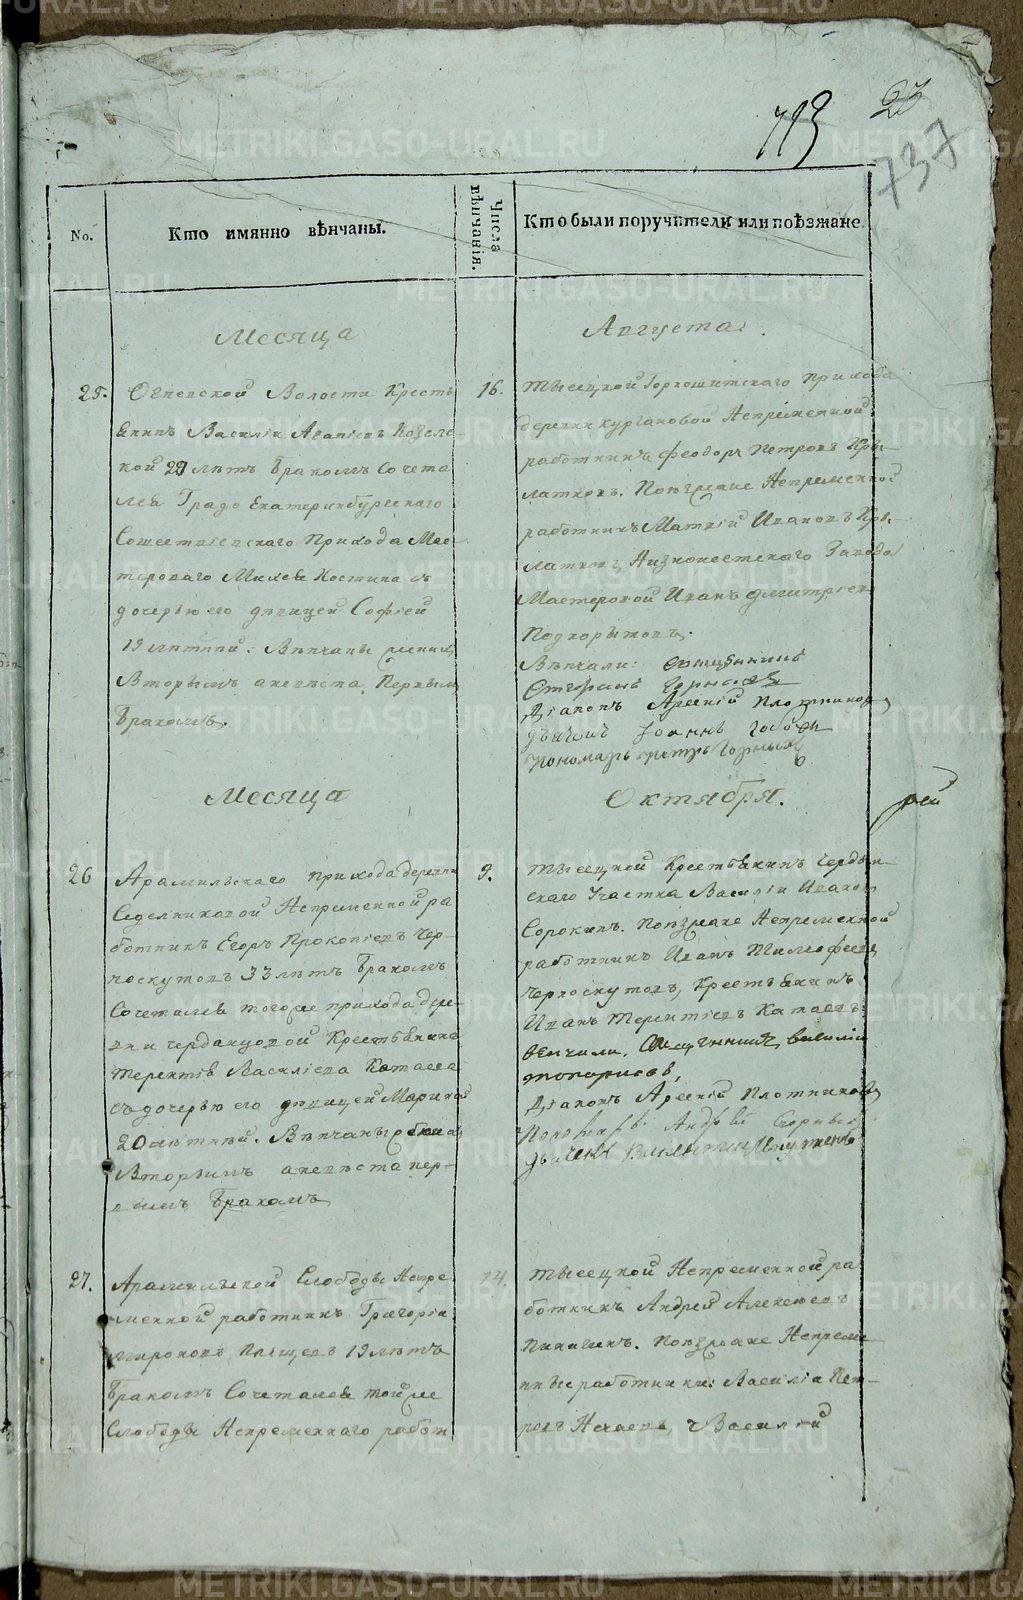 713
23
737
No.
Кто имянно вѣнчаны.
Числа вѣнчанія.
Кто были поручители или поѣзжане.
Месяца
Августа.
25.
Волости Кресть
янинъ Василій Агапіевъ
кой 29 лѣтъ бракомъ Сочета
лся Града Екатеринбургскаго
Сошествіевскаго Прихода Мас
тероваго Костина съ
дочерью его дѣвицей Софіей
19 лѣтней. Вѣнчаны
Вторымъ а невѣста Первымъ
бракомъ.
16.
Тысецкой Горношитскаго прихода
деревни Кургановой Непременной
работникъ Феодоръ Петровъ Кры-
латковъ. Поѣзжане Непременной
работникъ Матвій Ивановъ Кры-
латковъ, Низкоисетскаго Завода
Мастеровой Иванъ Дмитріевъ
Подкорытовъ.
Вѣнчали: Священникъ
Стефанъ
Діаконъ Арсеній Плотников
дьячекъ Іоаннъ
пономарь Петръ Горныхъ
Месяца
Октября.
26
Арамильскаго прихода деревни
Седелниковой Непременной ра
ботникъ Егоръ Прокопіевъ Чер-
носкутовъ 33 лѣтъ бракомъ
Сочетался тогоже прихода дере-
вни Черданцовой Крестьянина
Терентія Василіева Катаева
съ дочерью его дѣвицей Мариной
20 лѣтней. Вѣнчаны
Вторымъ а невѣста пер-
вымъ бракомъ
9.
Тысецкой Крестьянинъ
скаго Участка Василій Ивановъ
Сорокинъ. Поѣзжане Непременной
работникъ Иванъ Тимофеевъ
Черноскутовъ, Крестьянинъ
Иванъ Терентіевъ Катаевъ
венчали. Священникъ Василій
Топорковъ,
Діаконъ Арсеній Плотниковъ
Пономарь Андрей
дьячекъ
27.
Арамильской Слободы Непре
менной работникъ Григорій
Мироновъ 19 лѣтъ
бракомъ Сочетался тойже
Слободы Непременнаго работ
14.
Тысецкой Непременной ра
ботникъ Андрей Алексѣевъ
Поѣзжане Непреме
нные работники: Василій Пет-
ровъ и Василий
METRIKI.GASO-URAL.RU